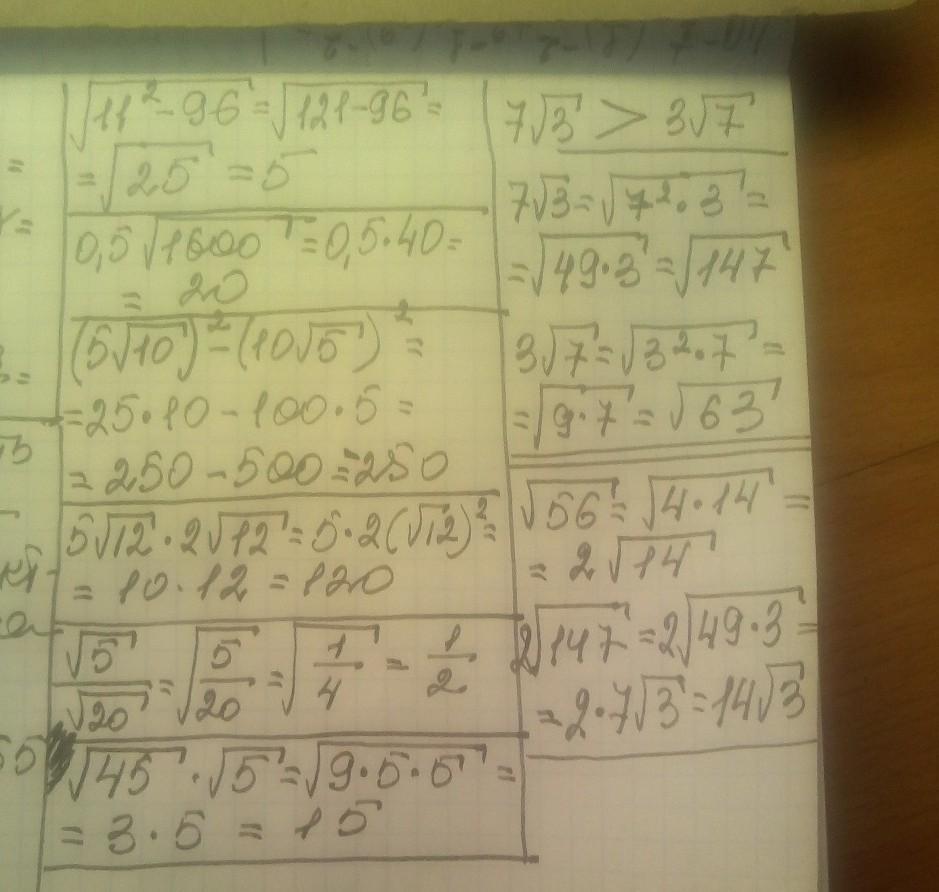 √(11² - 96) = √(121 - 96) =
= √25 = 5
0,5 √1600 = 0,5 · 40 =
= 20
(5√10)² - (10√5)² =
= 25 · 10 - 100 · 5 =
= 250 - 500 = -250
5√12 · 2√12 = 5 · 2(√12)² =
= 10 · 12 = 120
√5/√20 = √(5/20) = √(1/4) = 1/2
√45 · √5 = √(9 · 5 · 5) =
= 3 · 5 = 15
7√3 > 3√7
7√3 = √(7² · 3) =
= √(49 · 3) = √147
3√7 = √(3² · 7) =
= √(9 · 7) = √63
√56 = √(4 · 14) =
= 2√14
2√147 = 2√(49 · 3) =
= 2 · 7√3 = 14√3